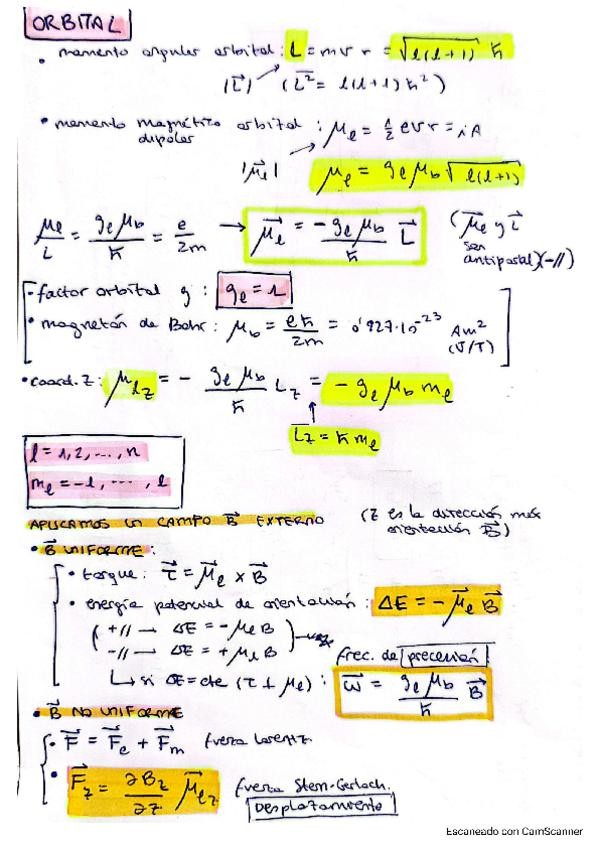 ORBITAL
• momento angular orbital: L = m v r = √l(l+1) ħ
|L⃗| (L⃗² = l(l+1) ħ²)
• momento magnético orbital : μₑ = ½ e v r = i A
dipolar
|μ⃗ₑ| μₑ = gₑ μ_b √l(l+1)
μₑ/L = gₑ μ_b/ħ = e/2m → μ⃗ₑ = -gₑ μ_b/ħ L⃗ (μ⃗ₑ y L⃗
son
antiparal)(-//)
• factor orbital g : gₑ = 1
• magnetón de Bohr: μ_b = eħ/2m = 0'927·10⁻²³ Am²
(J/T)
• coord. z: μ_lz = - gₑ μ_b/ħ L_z = - gₑ μ_b mₑ
L_z = ħ mₑ
l = 1, 2, ..., n
mₑ = -l, ..., l
APLICAMOS UN CAMPO B⃗ EXTERNO (z es la dirección
orientación B⃗)
• B⃗ UNIFORME:
• torque: τ⃗ = μ⃗ₑ x B⃗
• energía potencial de orientación : ΔE = - μ⃗ₑ B⃗
+// → ΔE = -μₑ B
-// → ΔE = +μₑ B
frec. de precesión
↳ si ΔE = cte (τ ⊥ μₑ) : ω⃗ = gₑ μ_b/ħ B⃗
• B⃗ NO UNIFORME
• F⃗ = F⃗ₑ + F⃗ₘ fuerza Lorentz.
• F⃗_z = ∂B_z/∂z μ⃗_ez fuerza Stern-Gerlach.
Desplazamiento
Escaneado con CamScanner